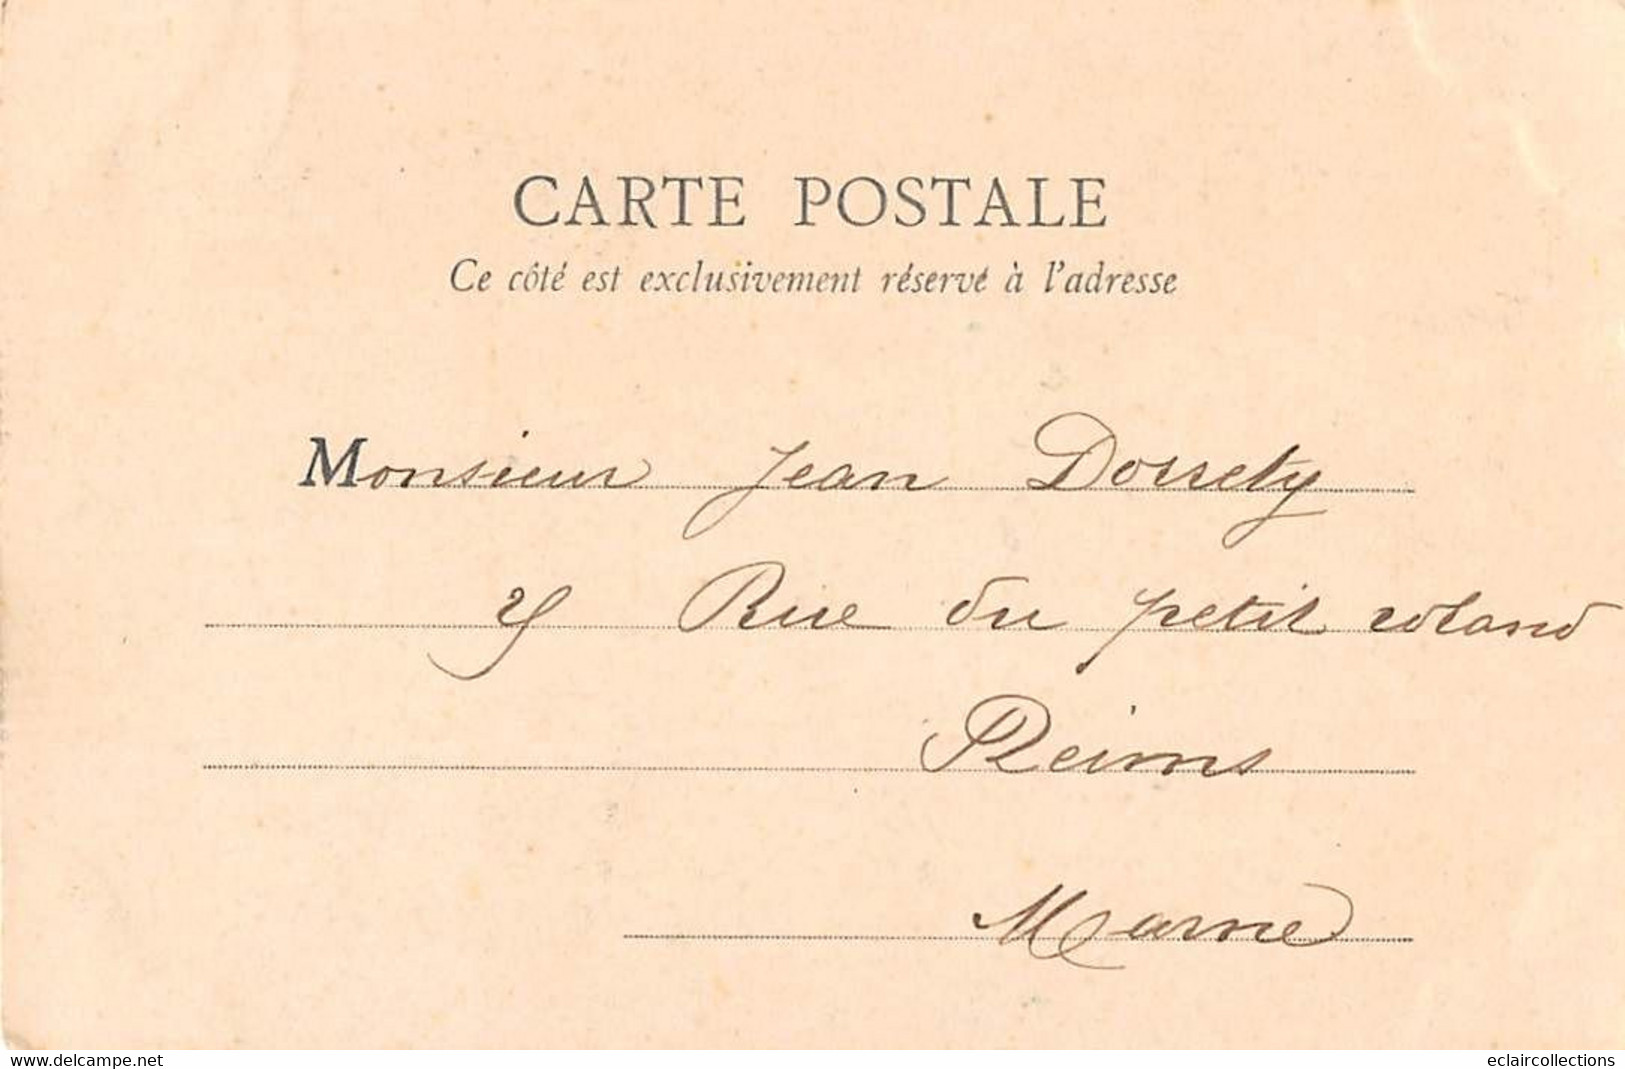 CARTE POSTALE
Ce côté est exclusivement réservé à l'adresse
Monsieur Jean
Rue du petit roland
Reims
Marne
www.delcampe.net
eclaircollections